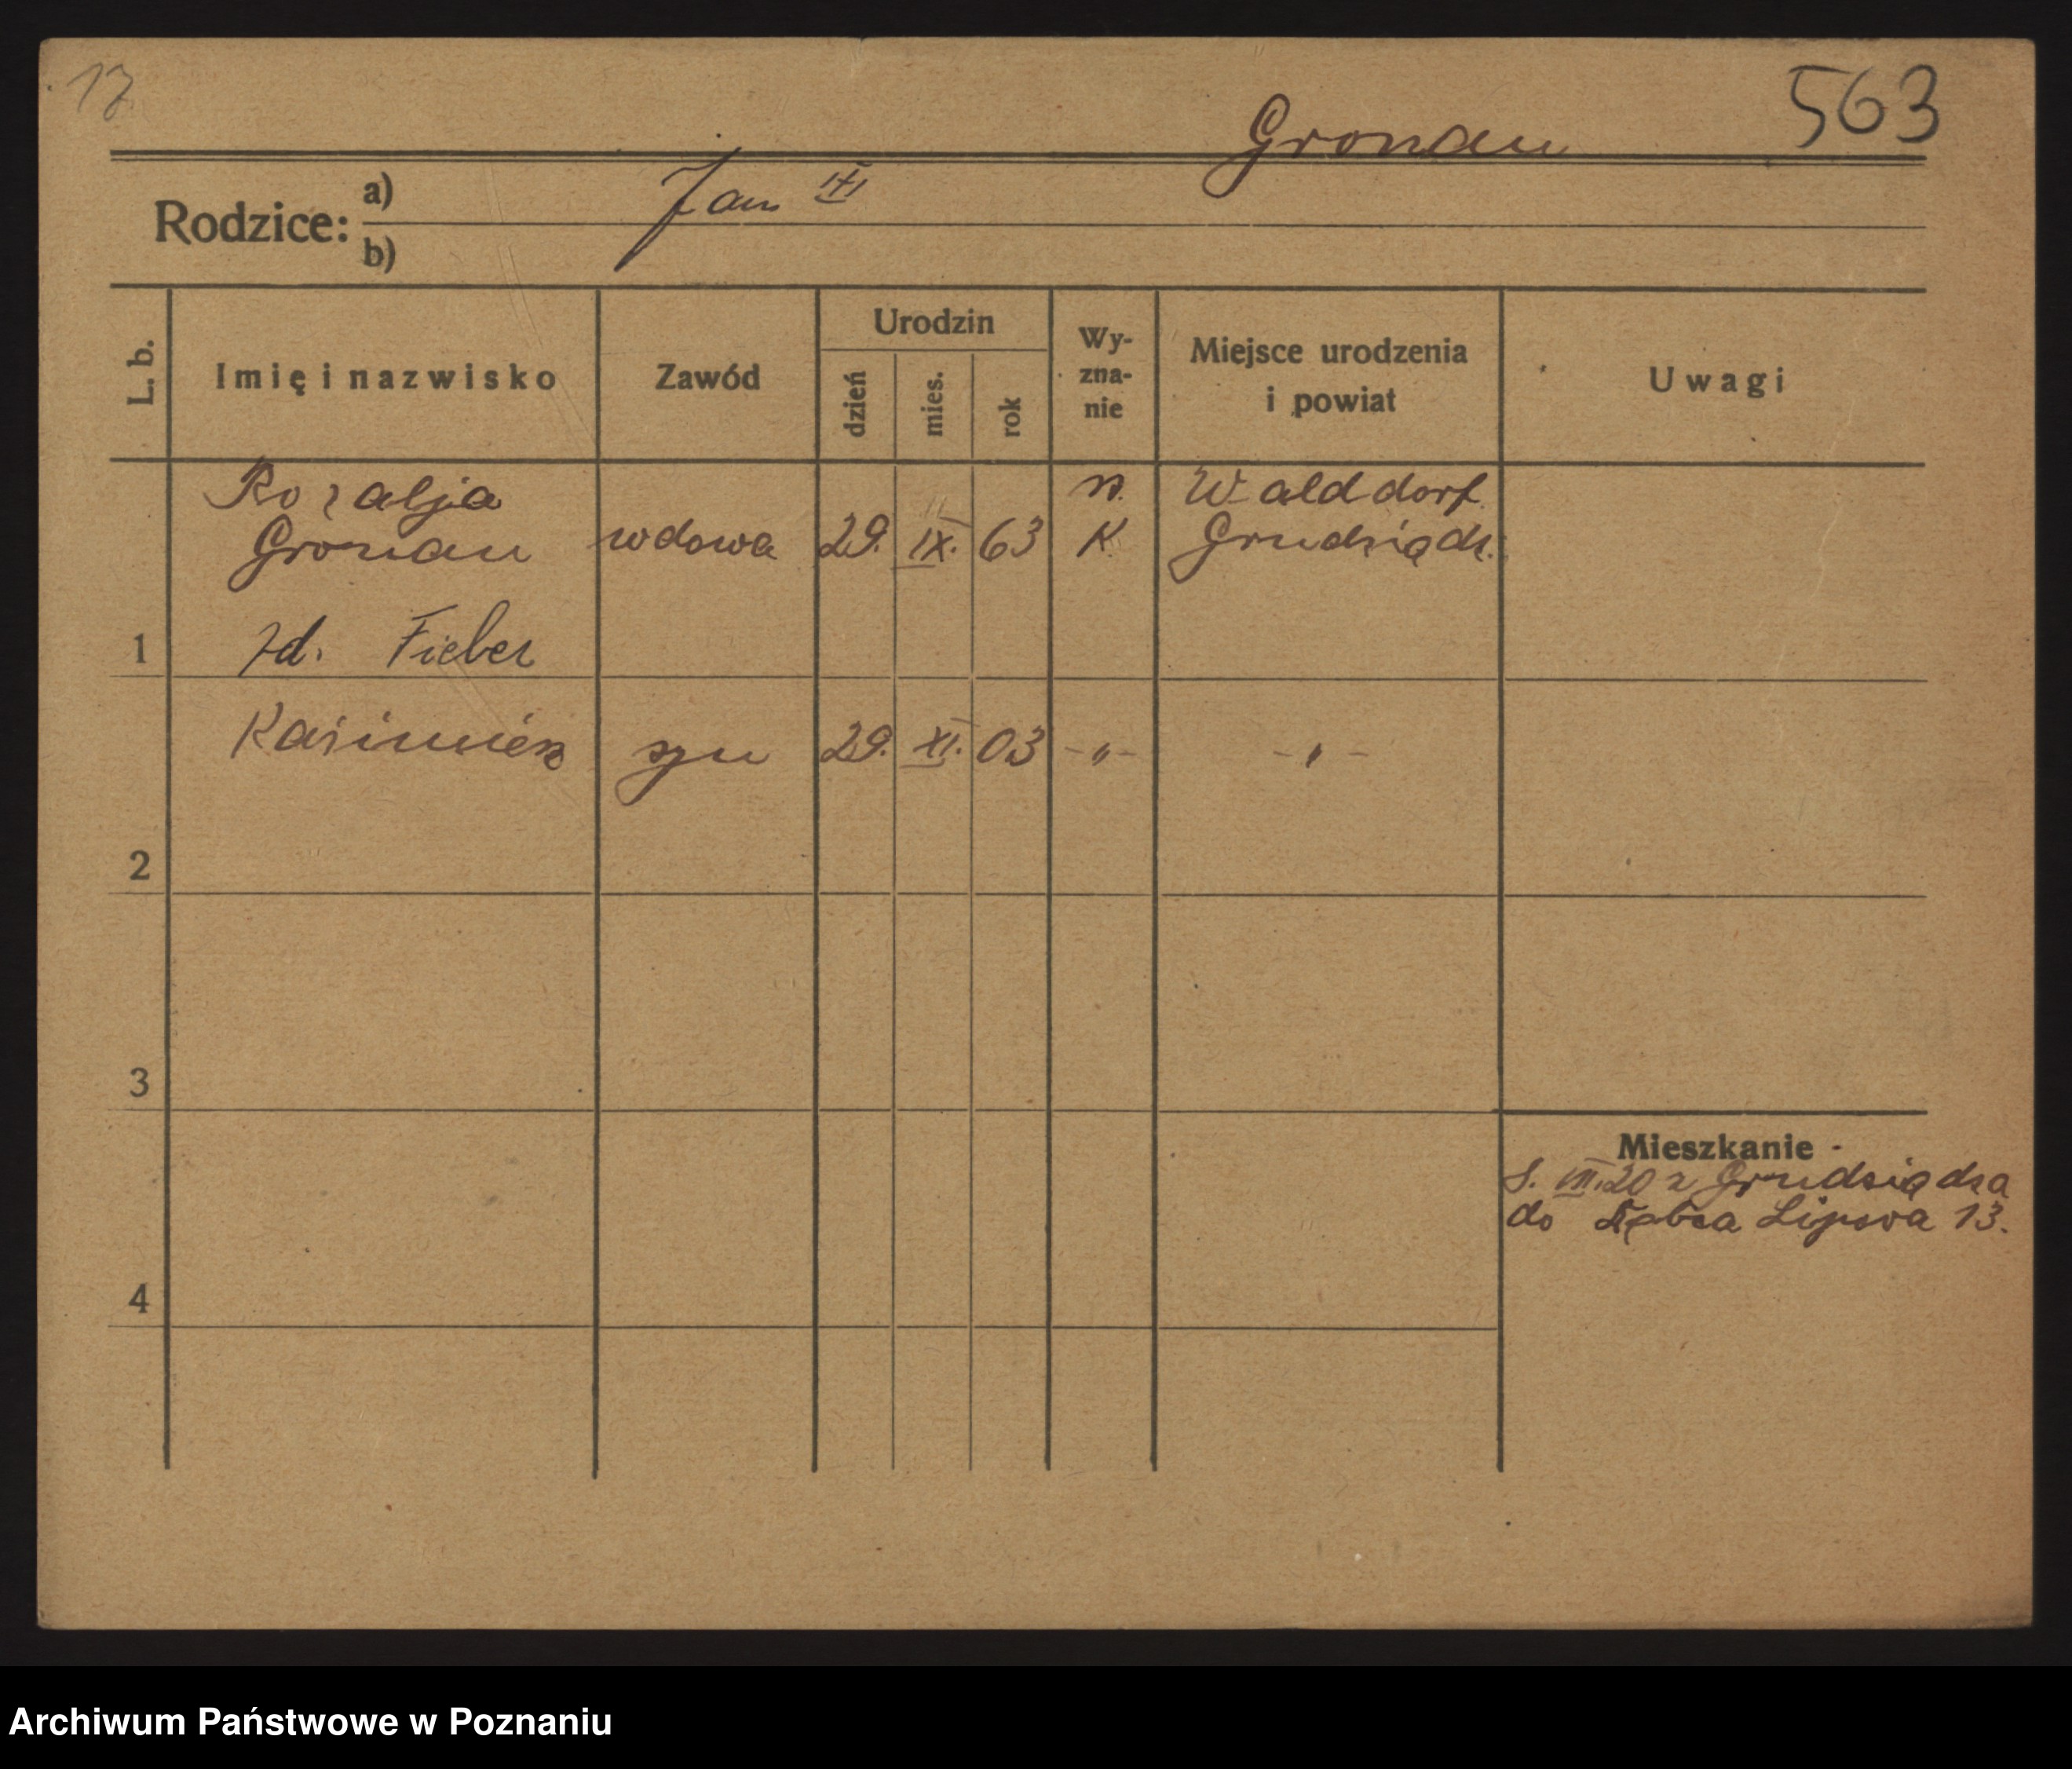 17
563
Gronau
Rodzice: a) Jan III
b)
L. b. Imię i nazwisko Zawód Urodzin dzień mies. rok Wy-zna-nie Miejsce urodzenia i powiat Uwagi
Rozalja r. Walddorf.
Gronau wdowa 29. IX. 63 K. Grudziądz.
1 zd. Fieber
Kazimierz syn 29. XI. 03 -"- -"-
2
3
Mieszkanie
VIII.20 z Grudziądza
do Lipowa 13.
4
Archiwum Państwowe w Poznaniu